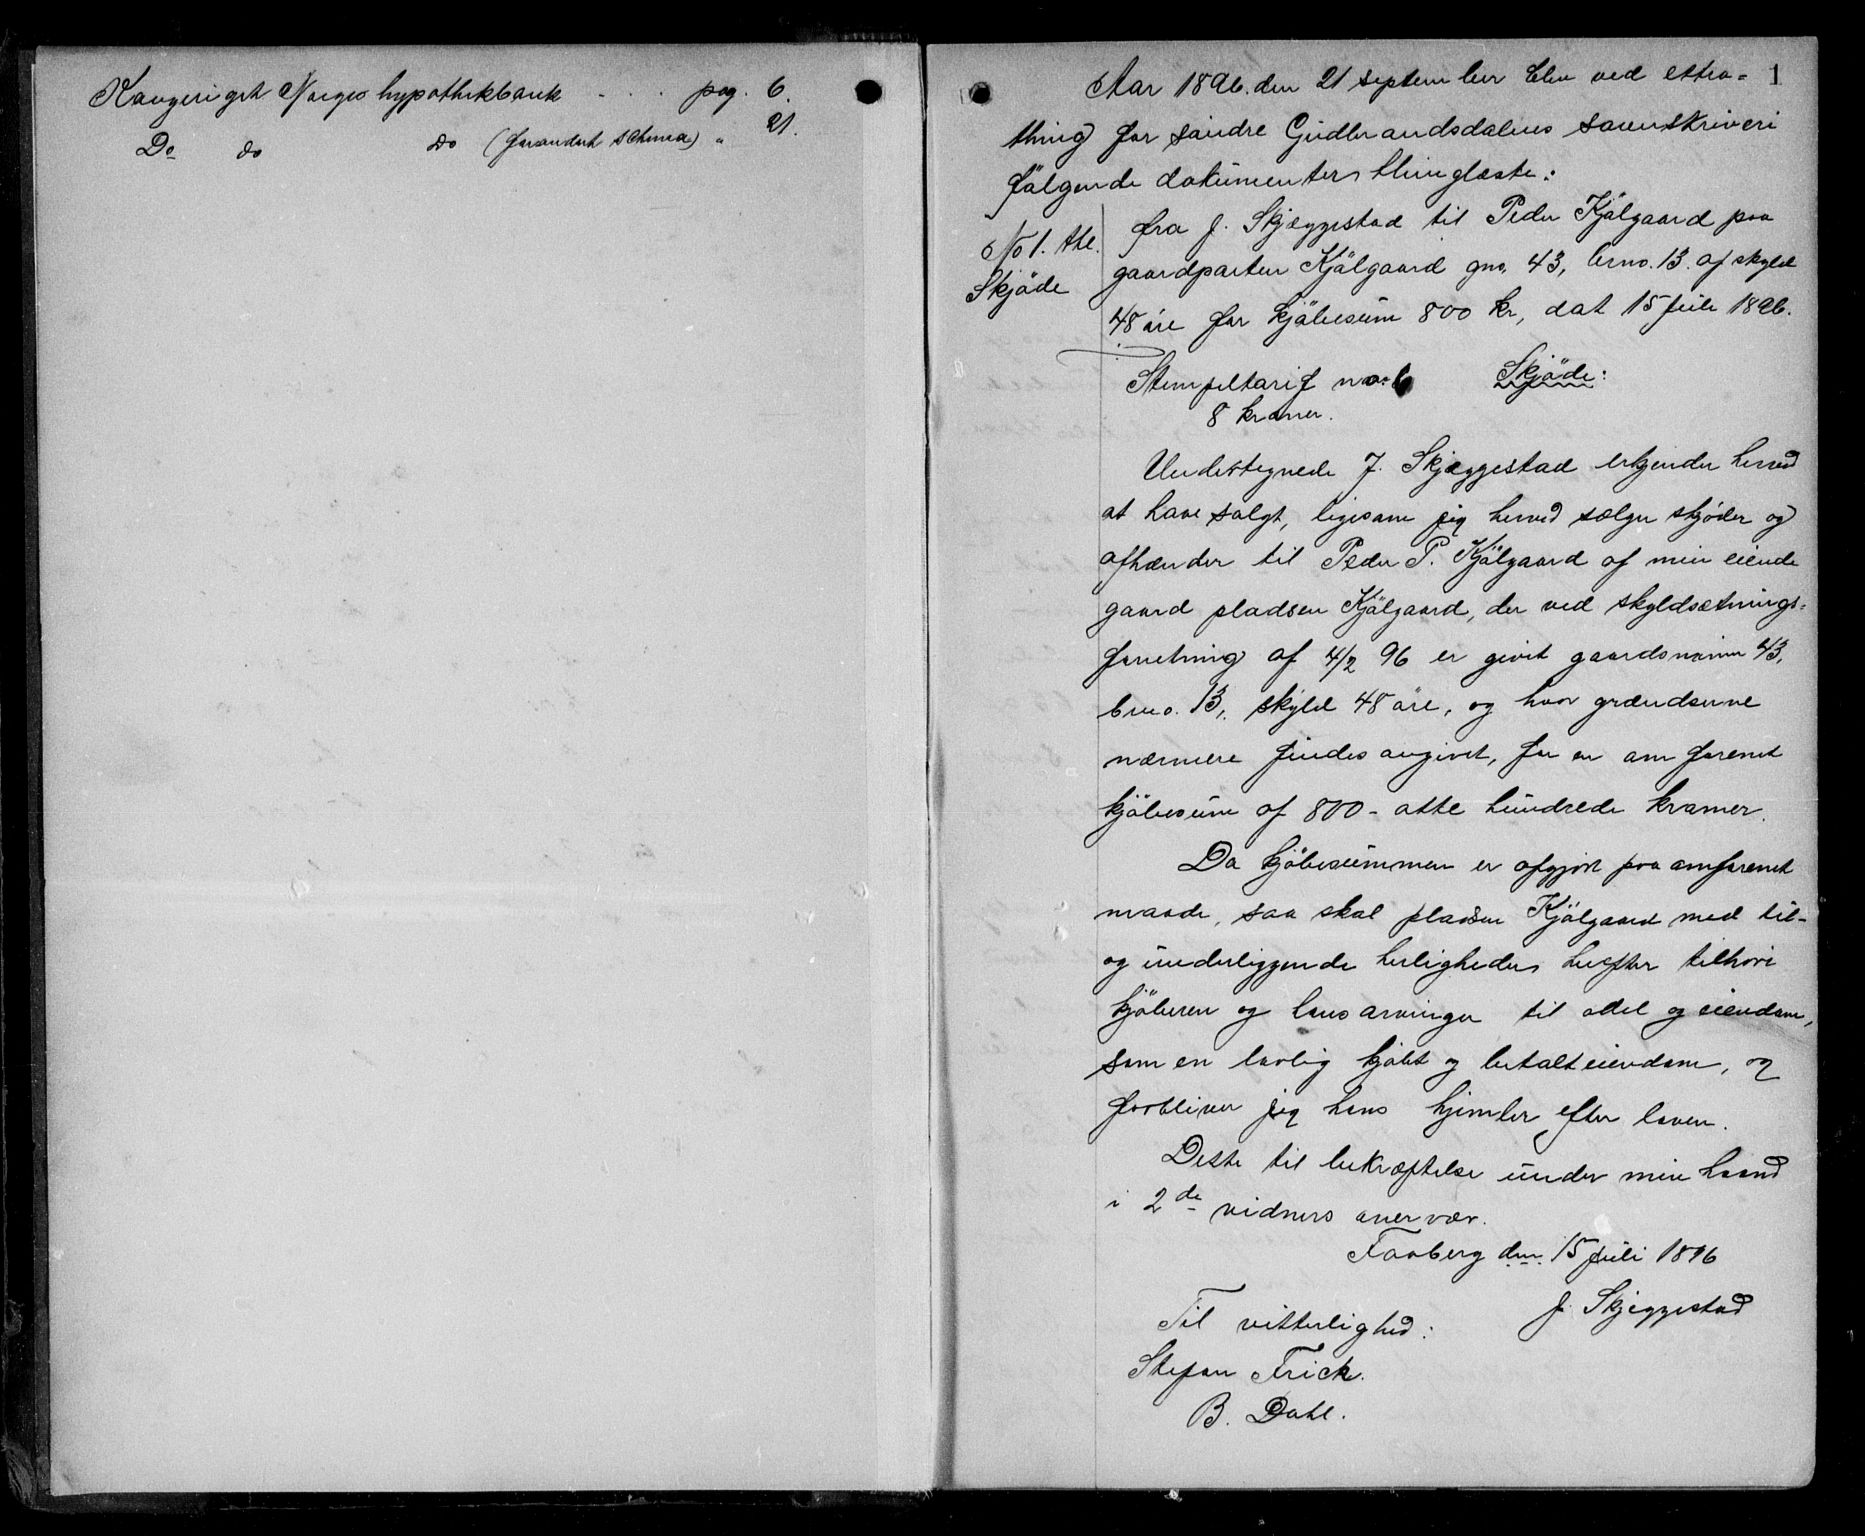 Kongeriget Norges hypothekbank - - - pag. 6.
Do do do (forandret schema) " 21.
1
Aar 1896 den 21 september blev ved extra-
thing for söndre Gudbrandsdalens sorenskriveri
fölgende dokumenter thinglæste:
No 1. Skjöde
fra J. Skjæggestad til Peder Kjölgaard paa
gaardparten Kjölgaard gno. 43, brno. 13. af skyld
48 öre for kjöbesum 800 kr, dat 15 juli 1896.
Stempeltarif no. 6 Skjöde:
8 kroner.
Undertegnede J. Skjæggestad erkjender herved
at have solgt, ligesom jeg herved sælger skjöder og
afhænder til Peder P. Kjölgaard af min eiende
gaard pladsen Kjölgaard, der ved skyldsætnings-
forretning af 4/2 96 er givet gaardsnummer 43,
brno. 13, skyld 48 öre, og hvor grændserne
nærmere findes angivet, for en omforenet
kjöbesum af 800 - otte hundrede kroner.
Da kjöbesummen er afgjort paa omforenet
maade, saa skal pladsen Kjölgaard med til-
og underliggende herligheder herefter tilhöre
kjöberen og hans arvinger til odel og eiendom,
som en lovlig kjöbt og betalt eiendom, og
forbliver jeg hans hjemler efter loven.
Dette til bekræftelse under min haand
i 2de vidners overvær.
Faaberg den 15 juli 1896
J. Skjeggestad
Til vitterlighed:
Stefan Frick.
B. Dahl.